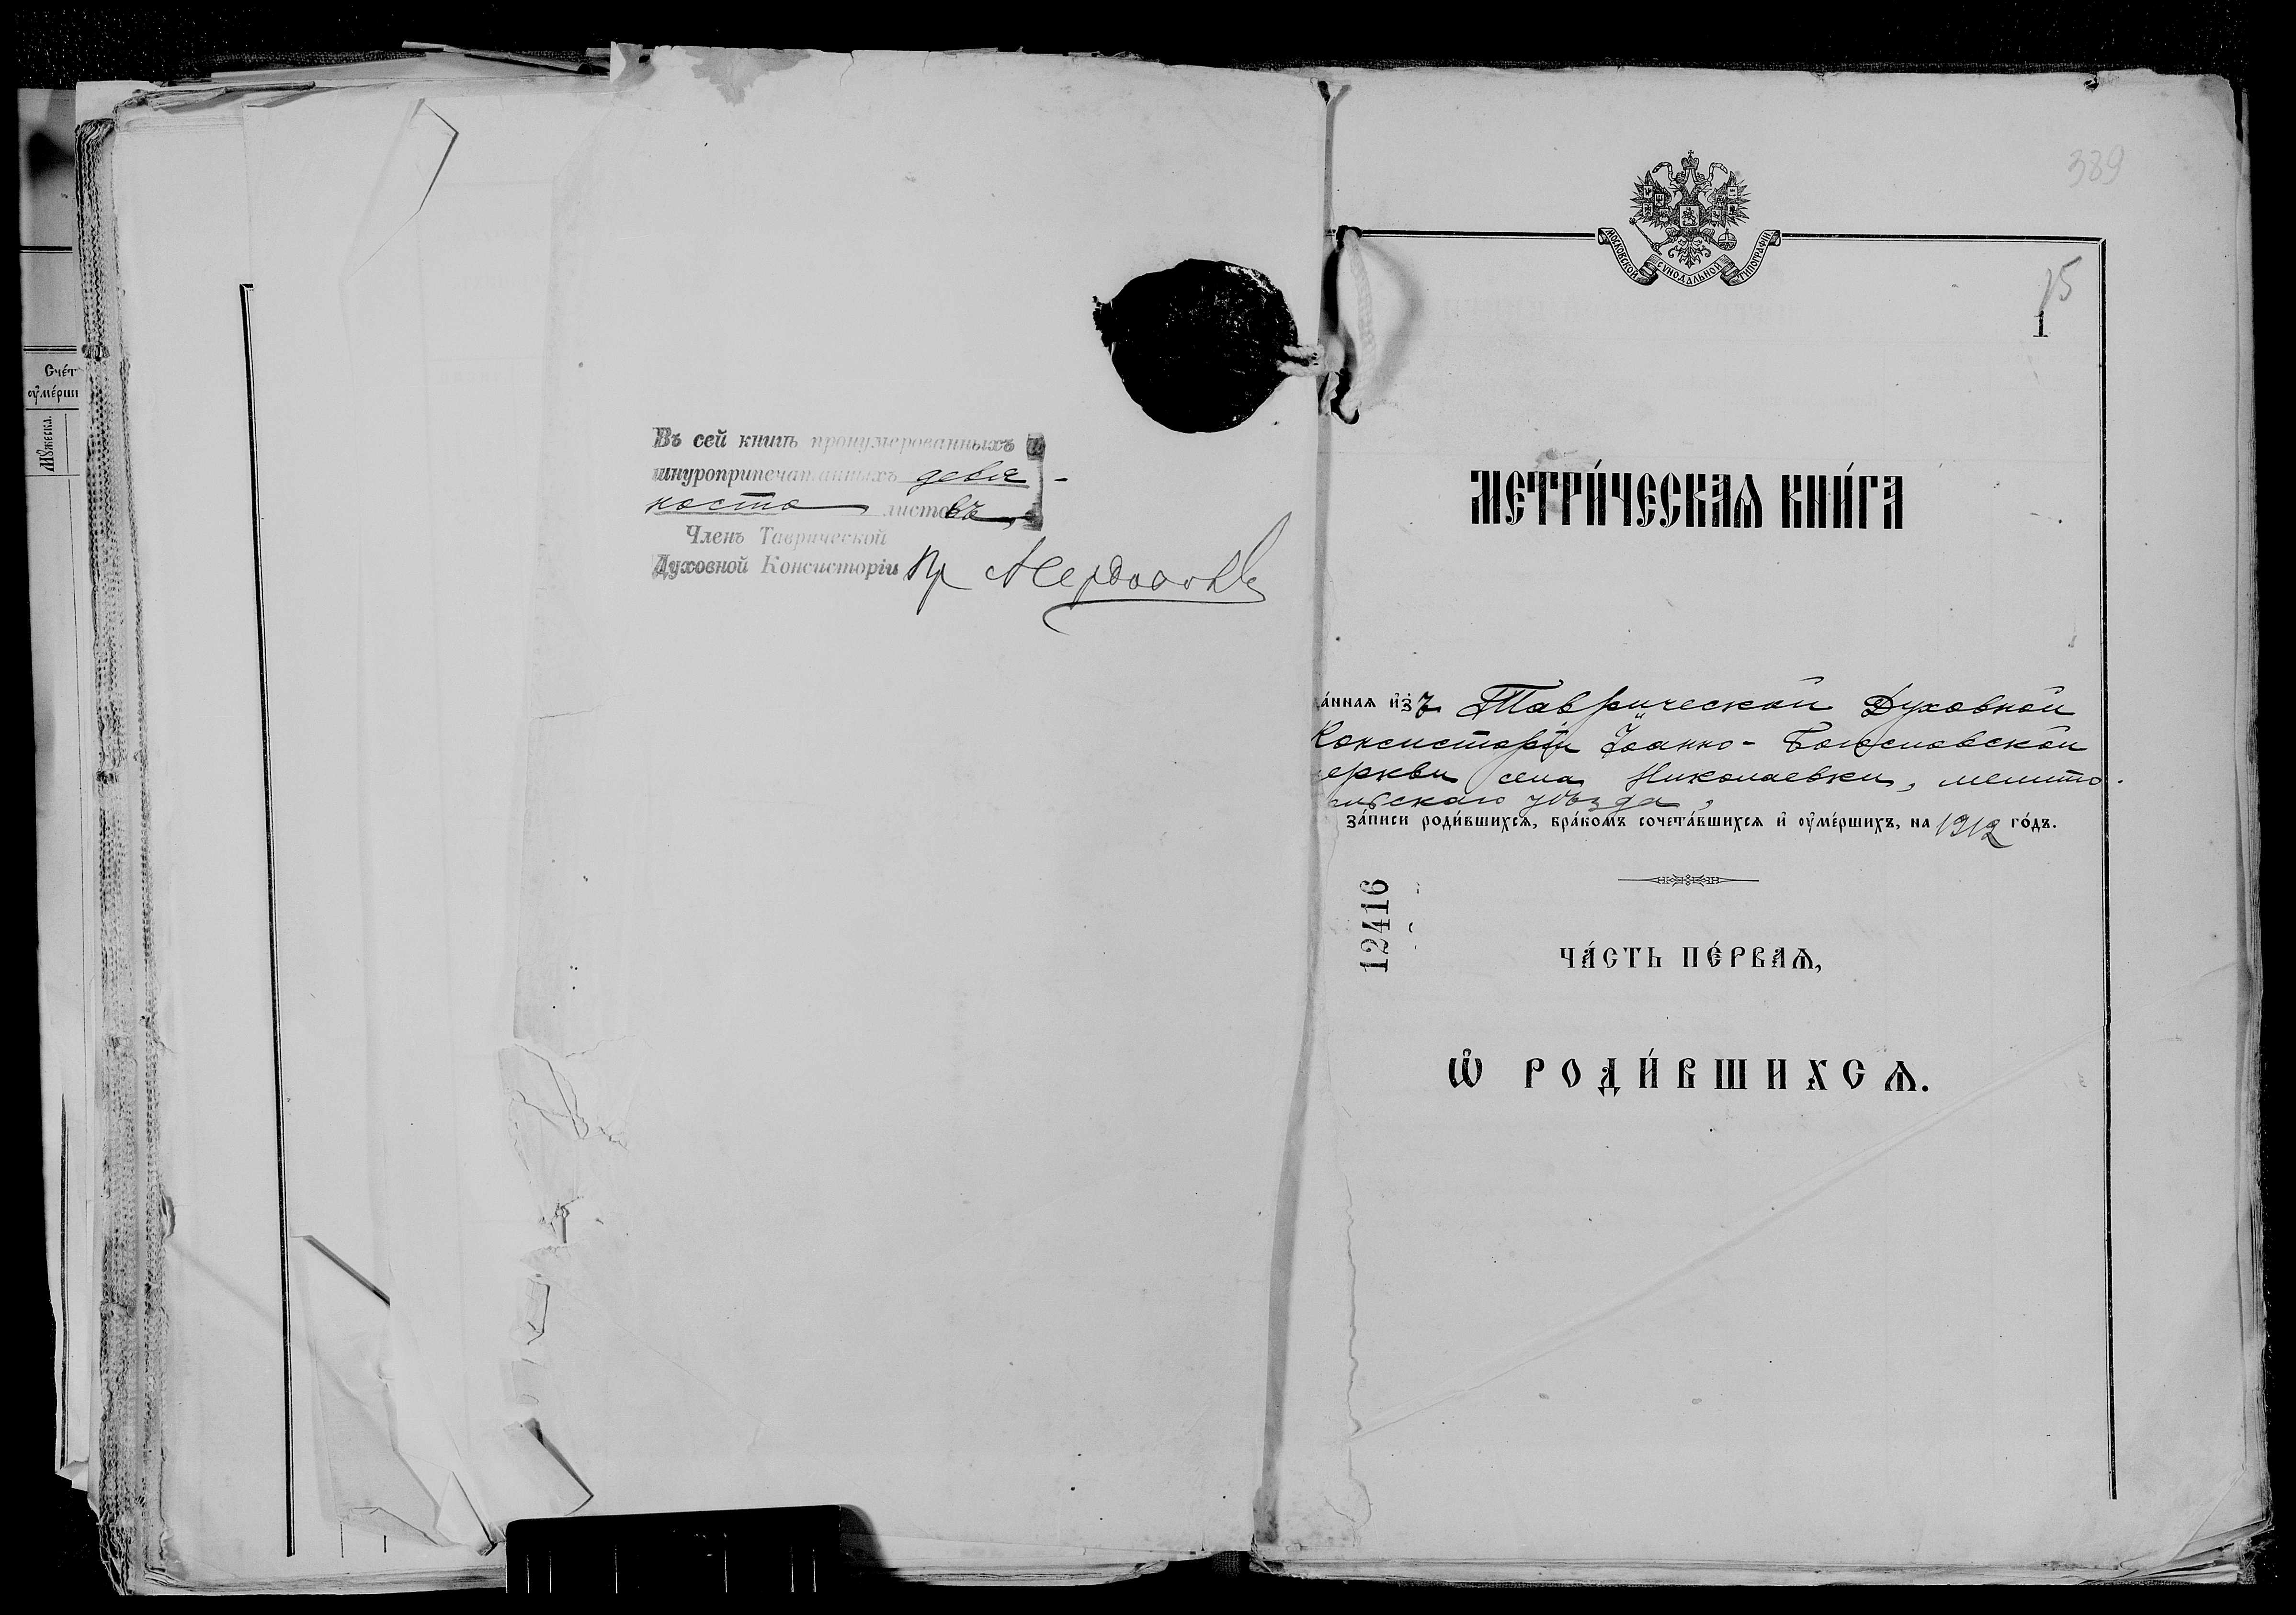 Счéт
ᲂу҆мéрши
Мꙋжеска.
Въ сей книгѣ пронумерованныхъ и
шнуроприпечатанныхъ девя-
носто листовъ,
Членъ Таврической
Духовной Консисторіи Пр
389
МОСКОВСКОЙ СѴНОДАЛЬНОЙ ТИПОГРАФІИ
15
1
МЕТРИ́ЧЕСКАѦ КНИ́ГА
áннаѧ и҆зъ Таврической Духовной
Консисторіи Іоанно-Богословской
еркви села Николаевки, мелито-
льскаго уѣзда,
зáписи роди́вшихсѧ, брáкомъ сочетáвшихсѧ и҆ ᲂу҆мéршихъ, на 1912 гóдъ.
12416
ЧÁСТЬ ПÉРВАѦ,
Ѽ РОДИ́ВШИХСѦ.